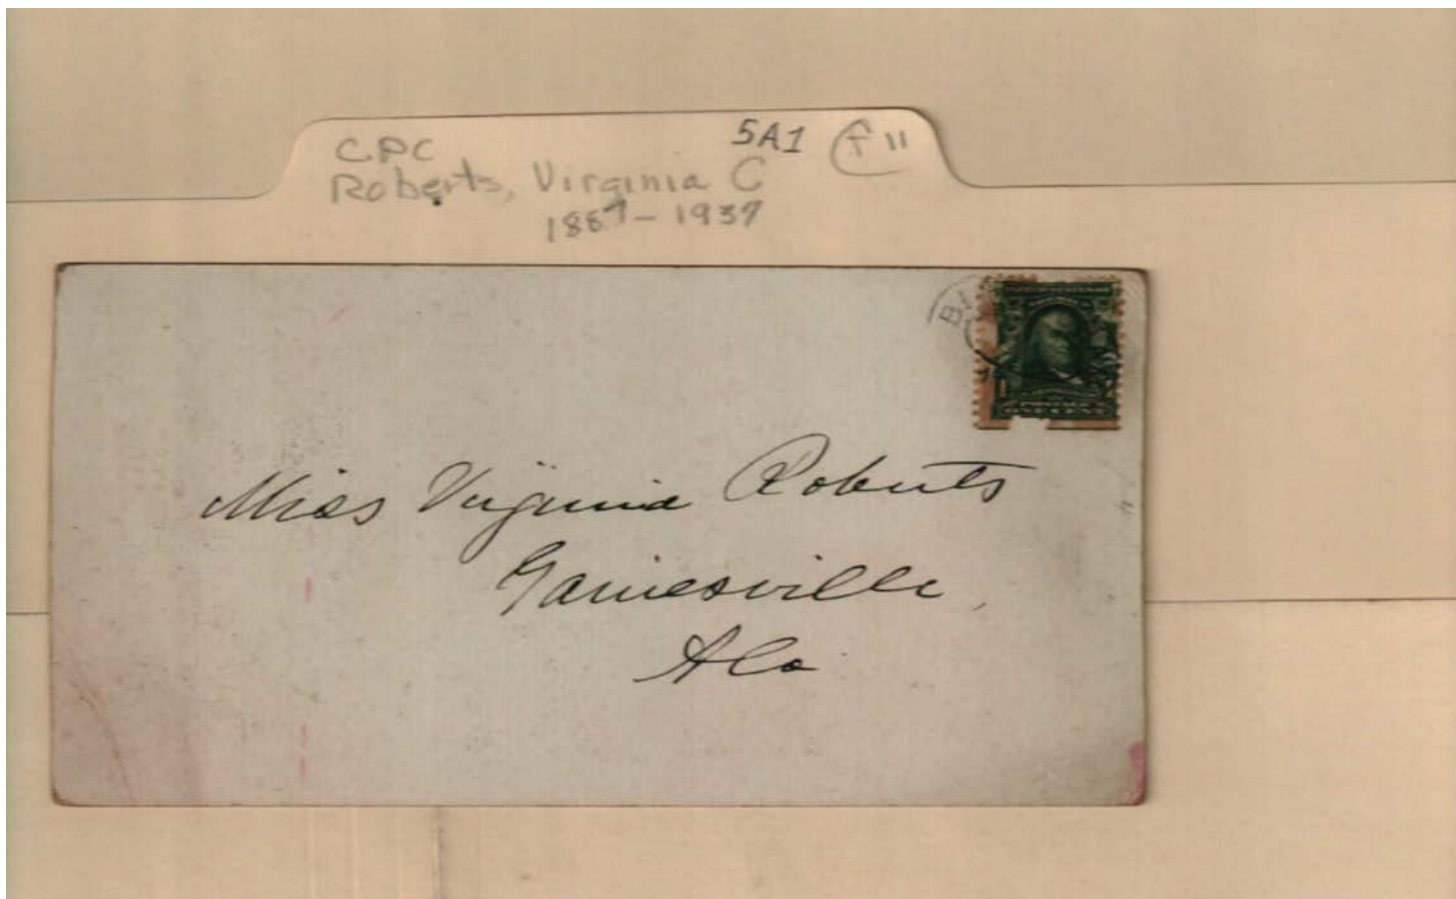 CPC 5A1 f"
Roberts, Virginia C
1887-1937
B
1
Miss Virginia Roberts
Gainesville,
Ala